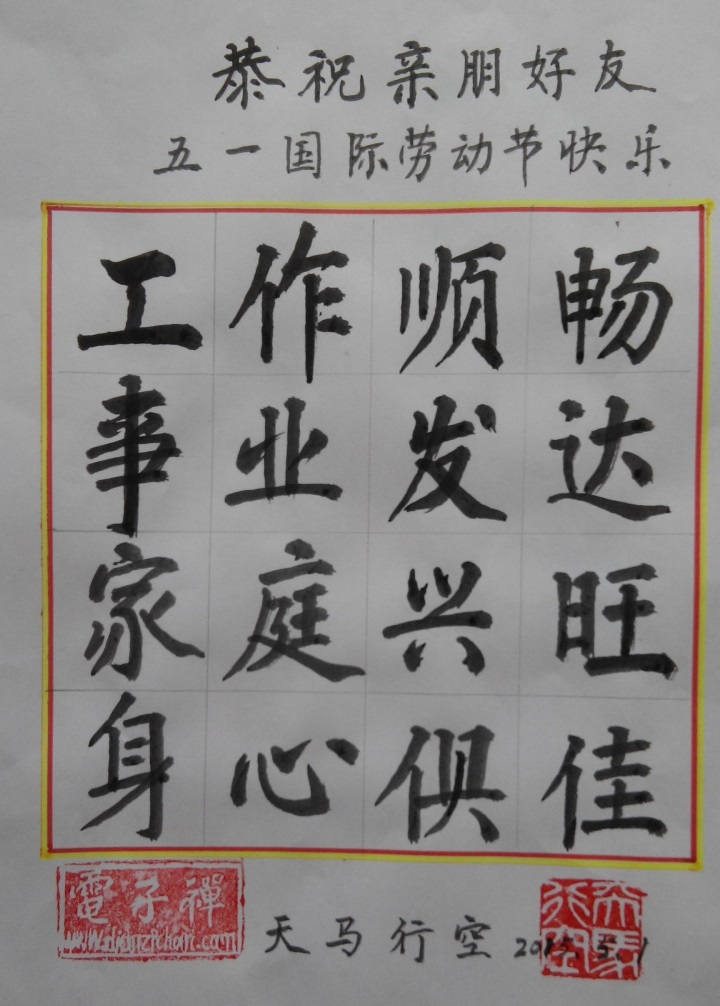 恭祝亲朋好友
五一国际劳动节快乐
工作顺畅
事业发达
家庭兴旺
身心俱佳
電子禪
www.dianzichan.com
天马行空 2015.5.1
天马行空